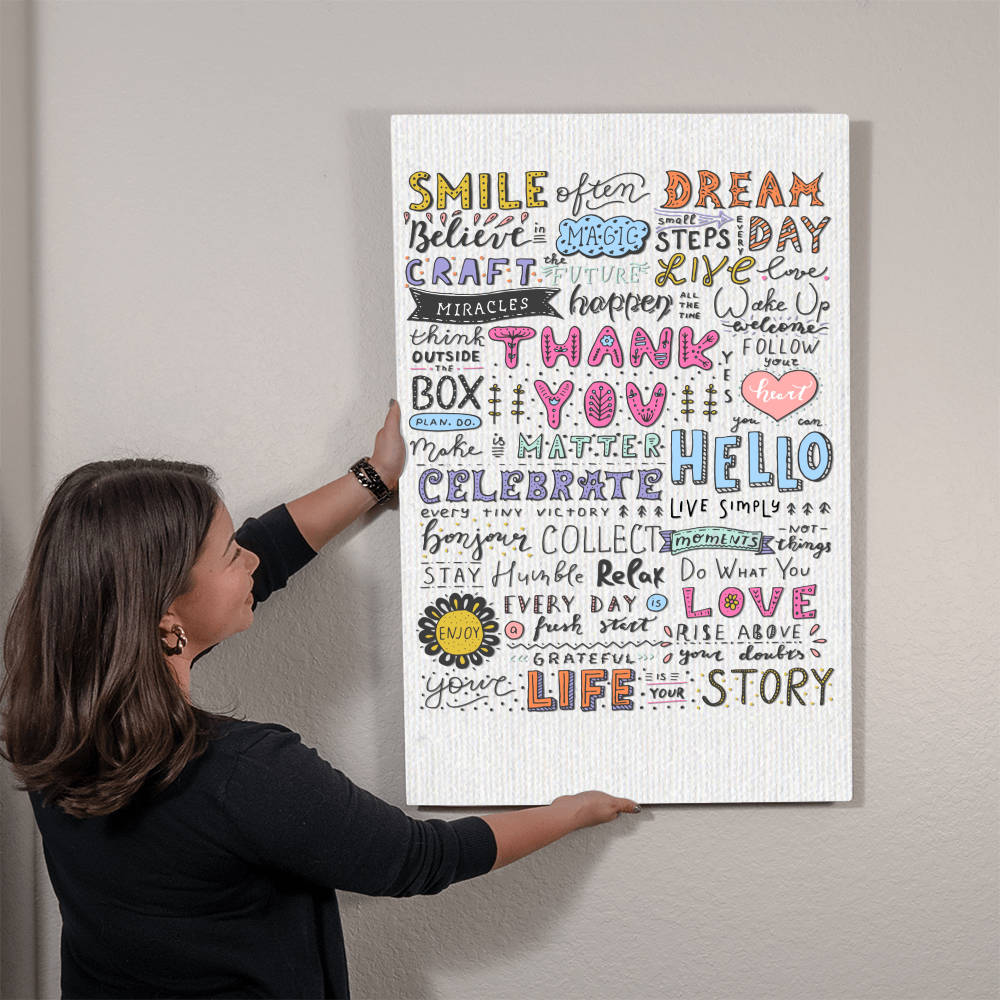 SMILE often DREAM
Believe in MAGIC small STEPS EVERY DAY
CRAFT the FUTURE LIVE love
MIRACLES happen ALL THE TIME Wake Up
welcome
think OUTSIDE THE BOX
THANK YOU YES
FOLLOW your heart
PLAN. DO.
you can
Make is MATTER HELLO
CELEBRATE
every TINY VICTORY LIVE SIMPLY
bonjour COLLECT moments NOT things
STAY Humble Relax Do What You
ENJOY EVERY DAY is LOVE
a fresh start RISE ABOVE
GRATEFUL your doubts
your LIFE IS YOUR STORY